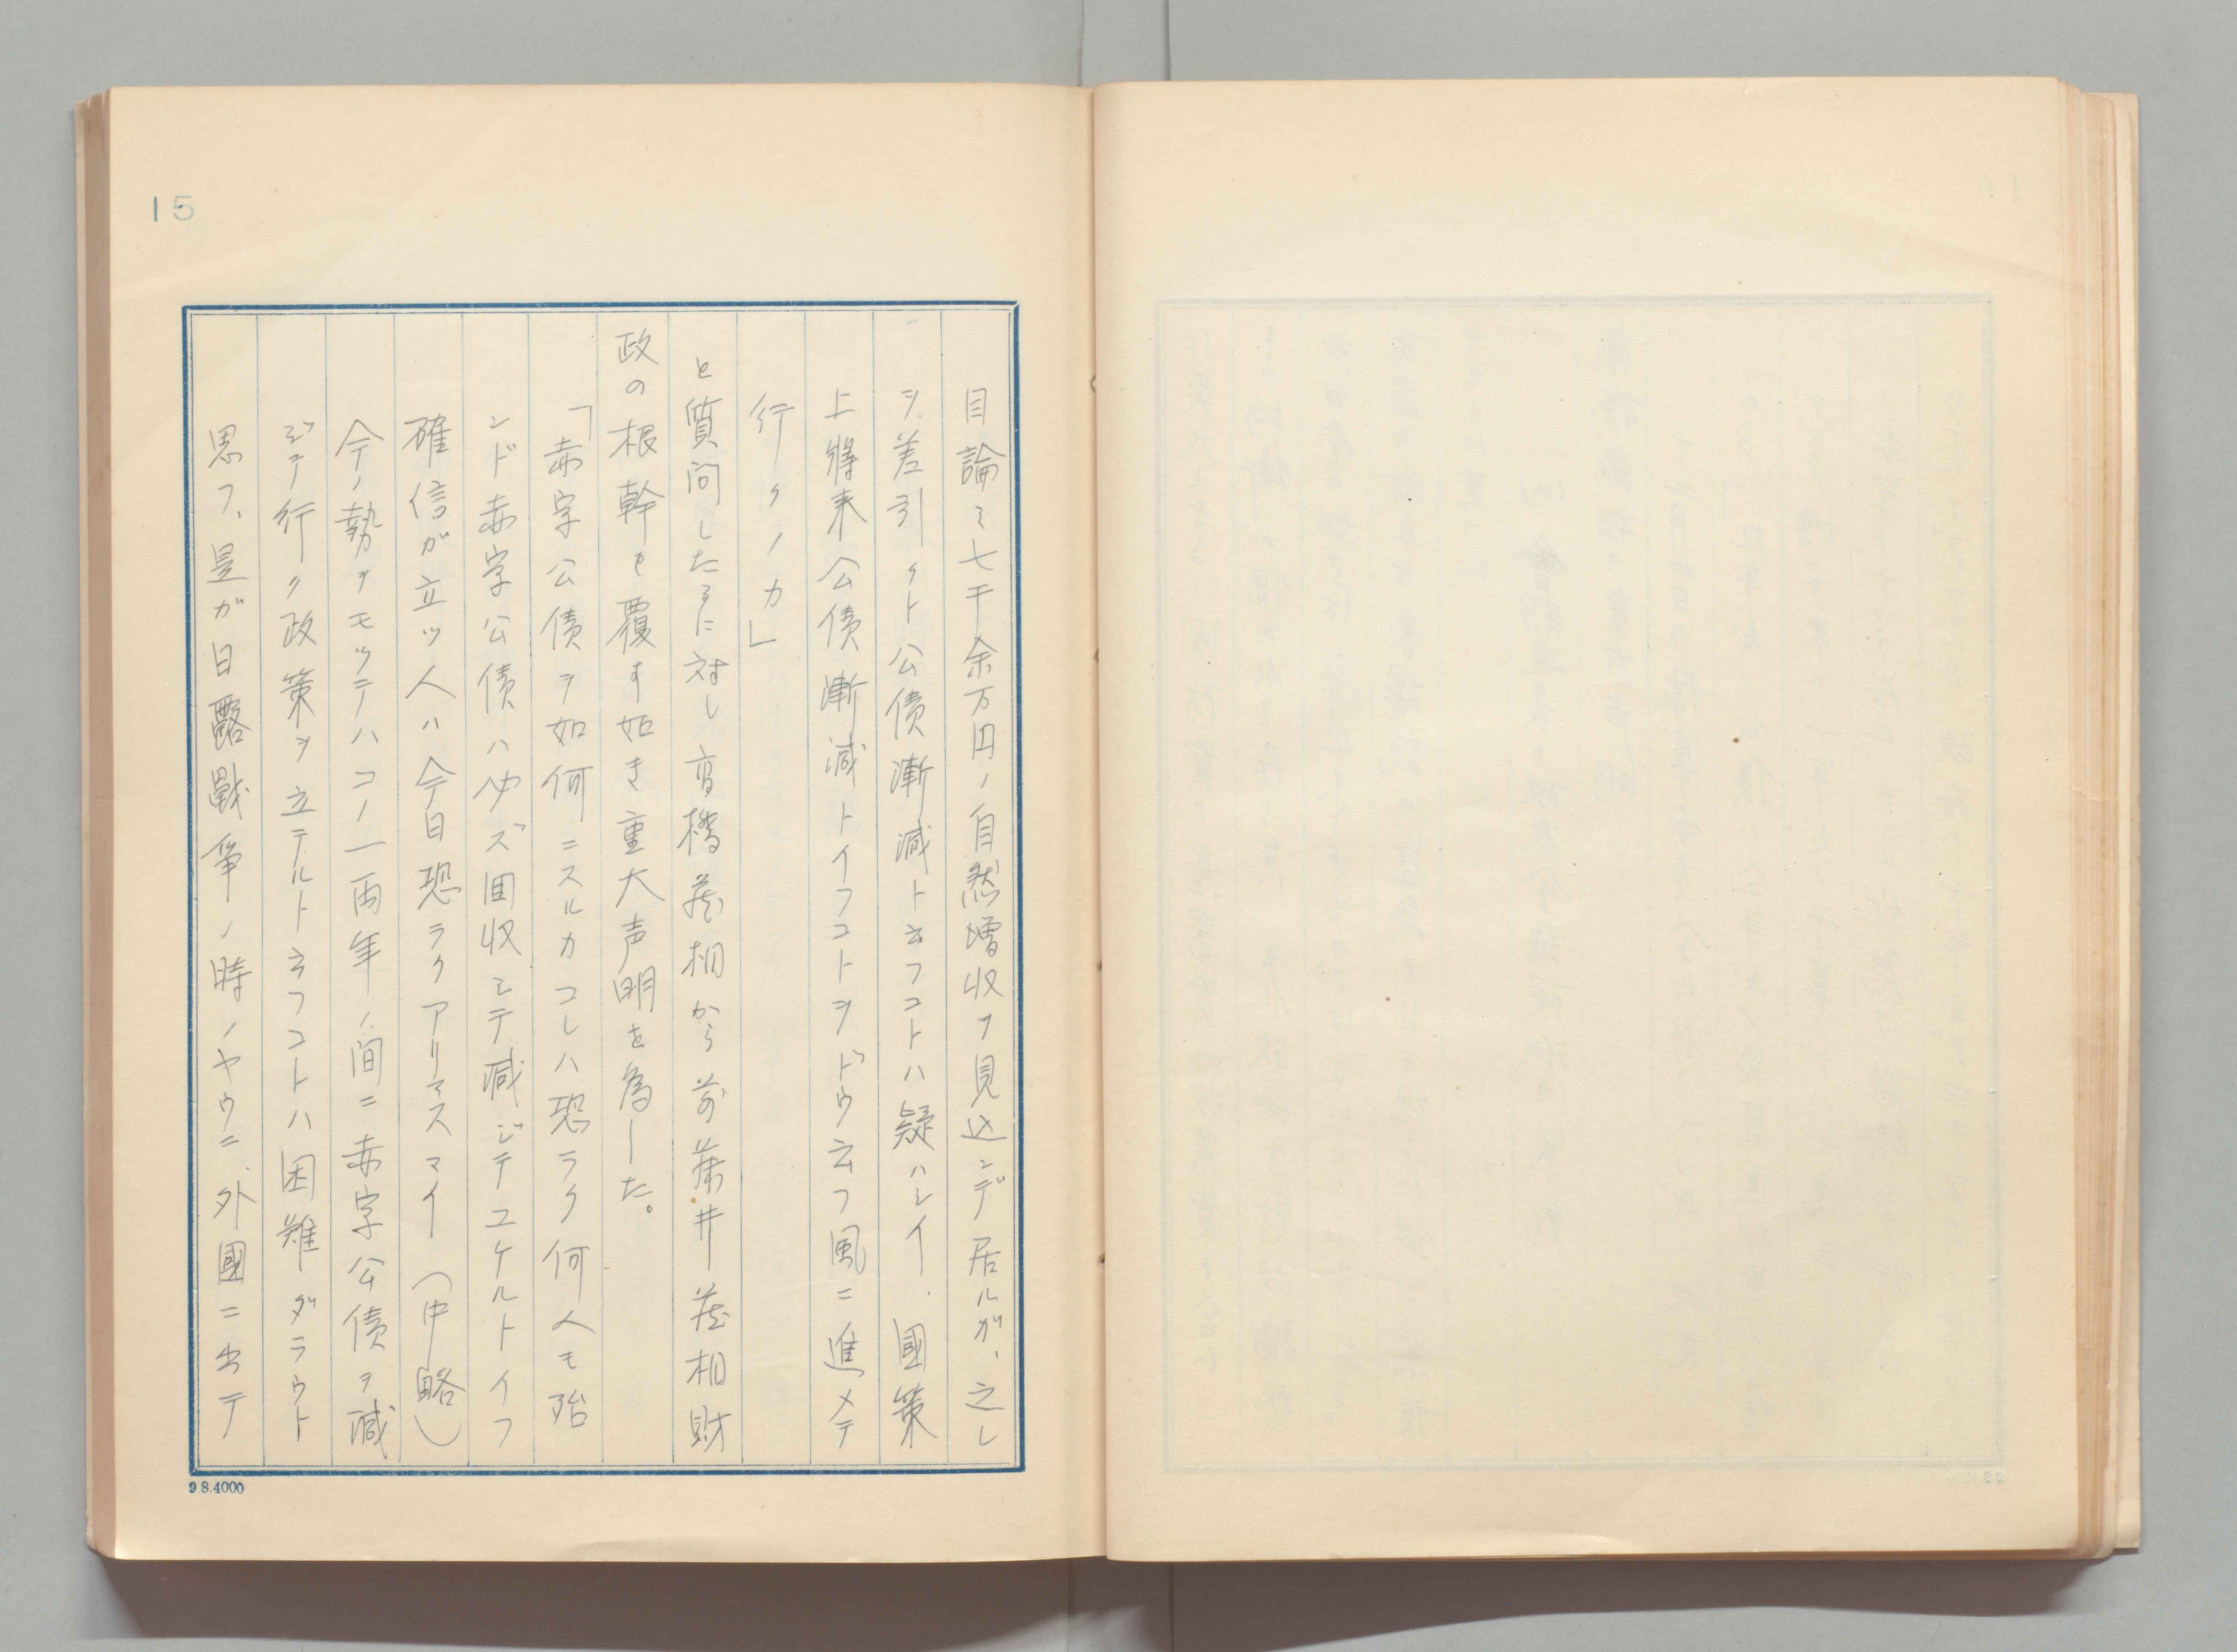 15
目論ミ七千余万円ノ自然増収ヲ見込ンデ居ルガ、之レ
ヲ差引クト公債漸減ト云フコトハ疑ハレイ、國策
上將来公債漸減トイフコトヲドウ云フ風ニ進メテ
行クノカ」
と質問したるに対し高橋蔵相から前藤井蔵相財
政の根幹を覆す如き重大声明を為した。
「赤字公債ヲ如何ニスルカコレハ恐ラク何人モ殆
ンド赤字公債ハ必ズ回収シテ減ジテユケルトイフ
確信ガ立ツ人ハ今日恐ラクアリマスマイ（中略）
今ノ勢ヲモッテハコノ一両年ノ間ニ赤字公債ヲ減
ジテ行ク政策ヲ立テルト云フコトハ困難ダラウト
思フ、是ガ日露戰爭ノ時ノヤウニ、外國ニ出テ
9.8.4000